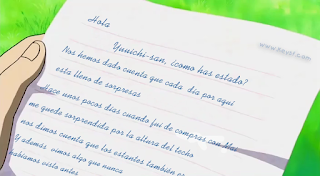 Hola
Yuuichi-san, ¿como has estado?
www.
Nos hemos dado cuenta que cada día por aquí
esta lleno de sorpresas
Hace unos pocos días cuando fui de compras con
me quede sorprendida por la altura del techo
nos dimos cuenta que los estantes también
Y además vimos algo que nunca
habíamos visto antes